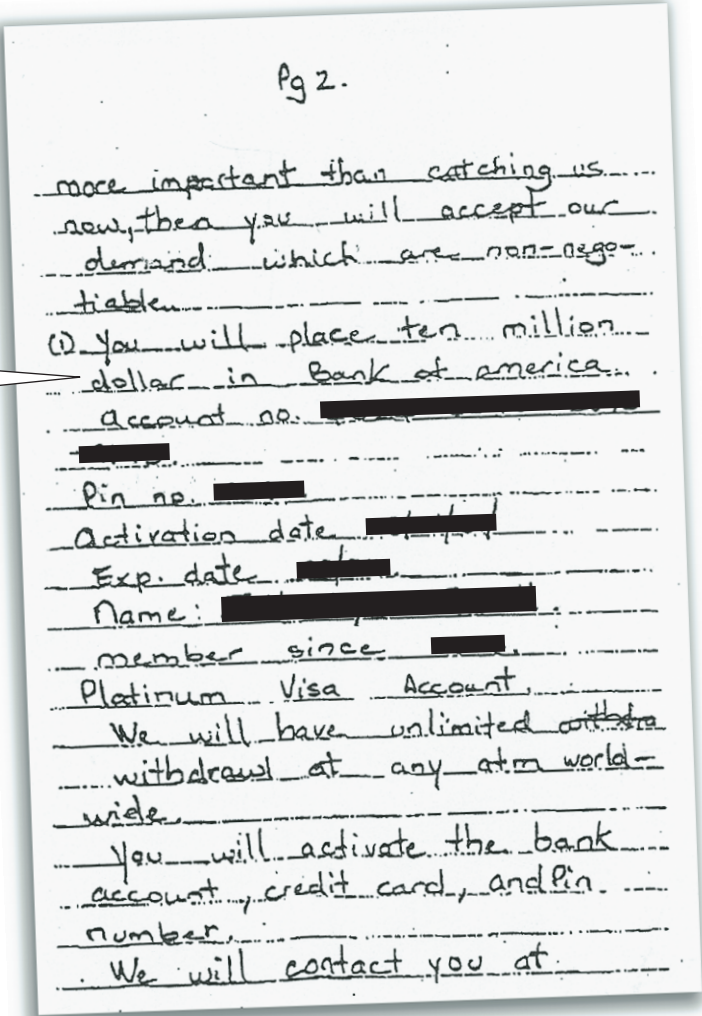 Pg 2.
more important than catching us
now, then you will accept our
demand which are non-nego-
tiable.
(1) You will place ten million
dollar in Bank of america
account no.
Pin no.
Activation date
Exp. date
Name:
member since
Platinum Visa Account.
We will have unlimited withdra
withdrawl at any atm world-
wide.
You will activate the bank
account, credit card, and Pin
number.
We will contact you at